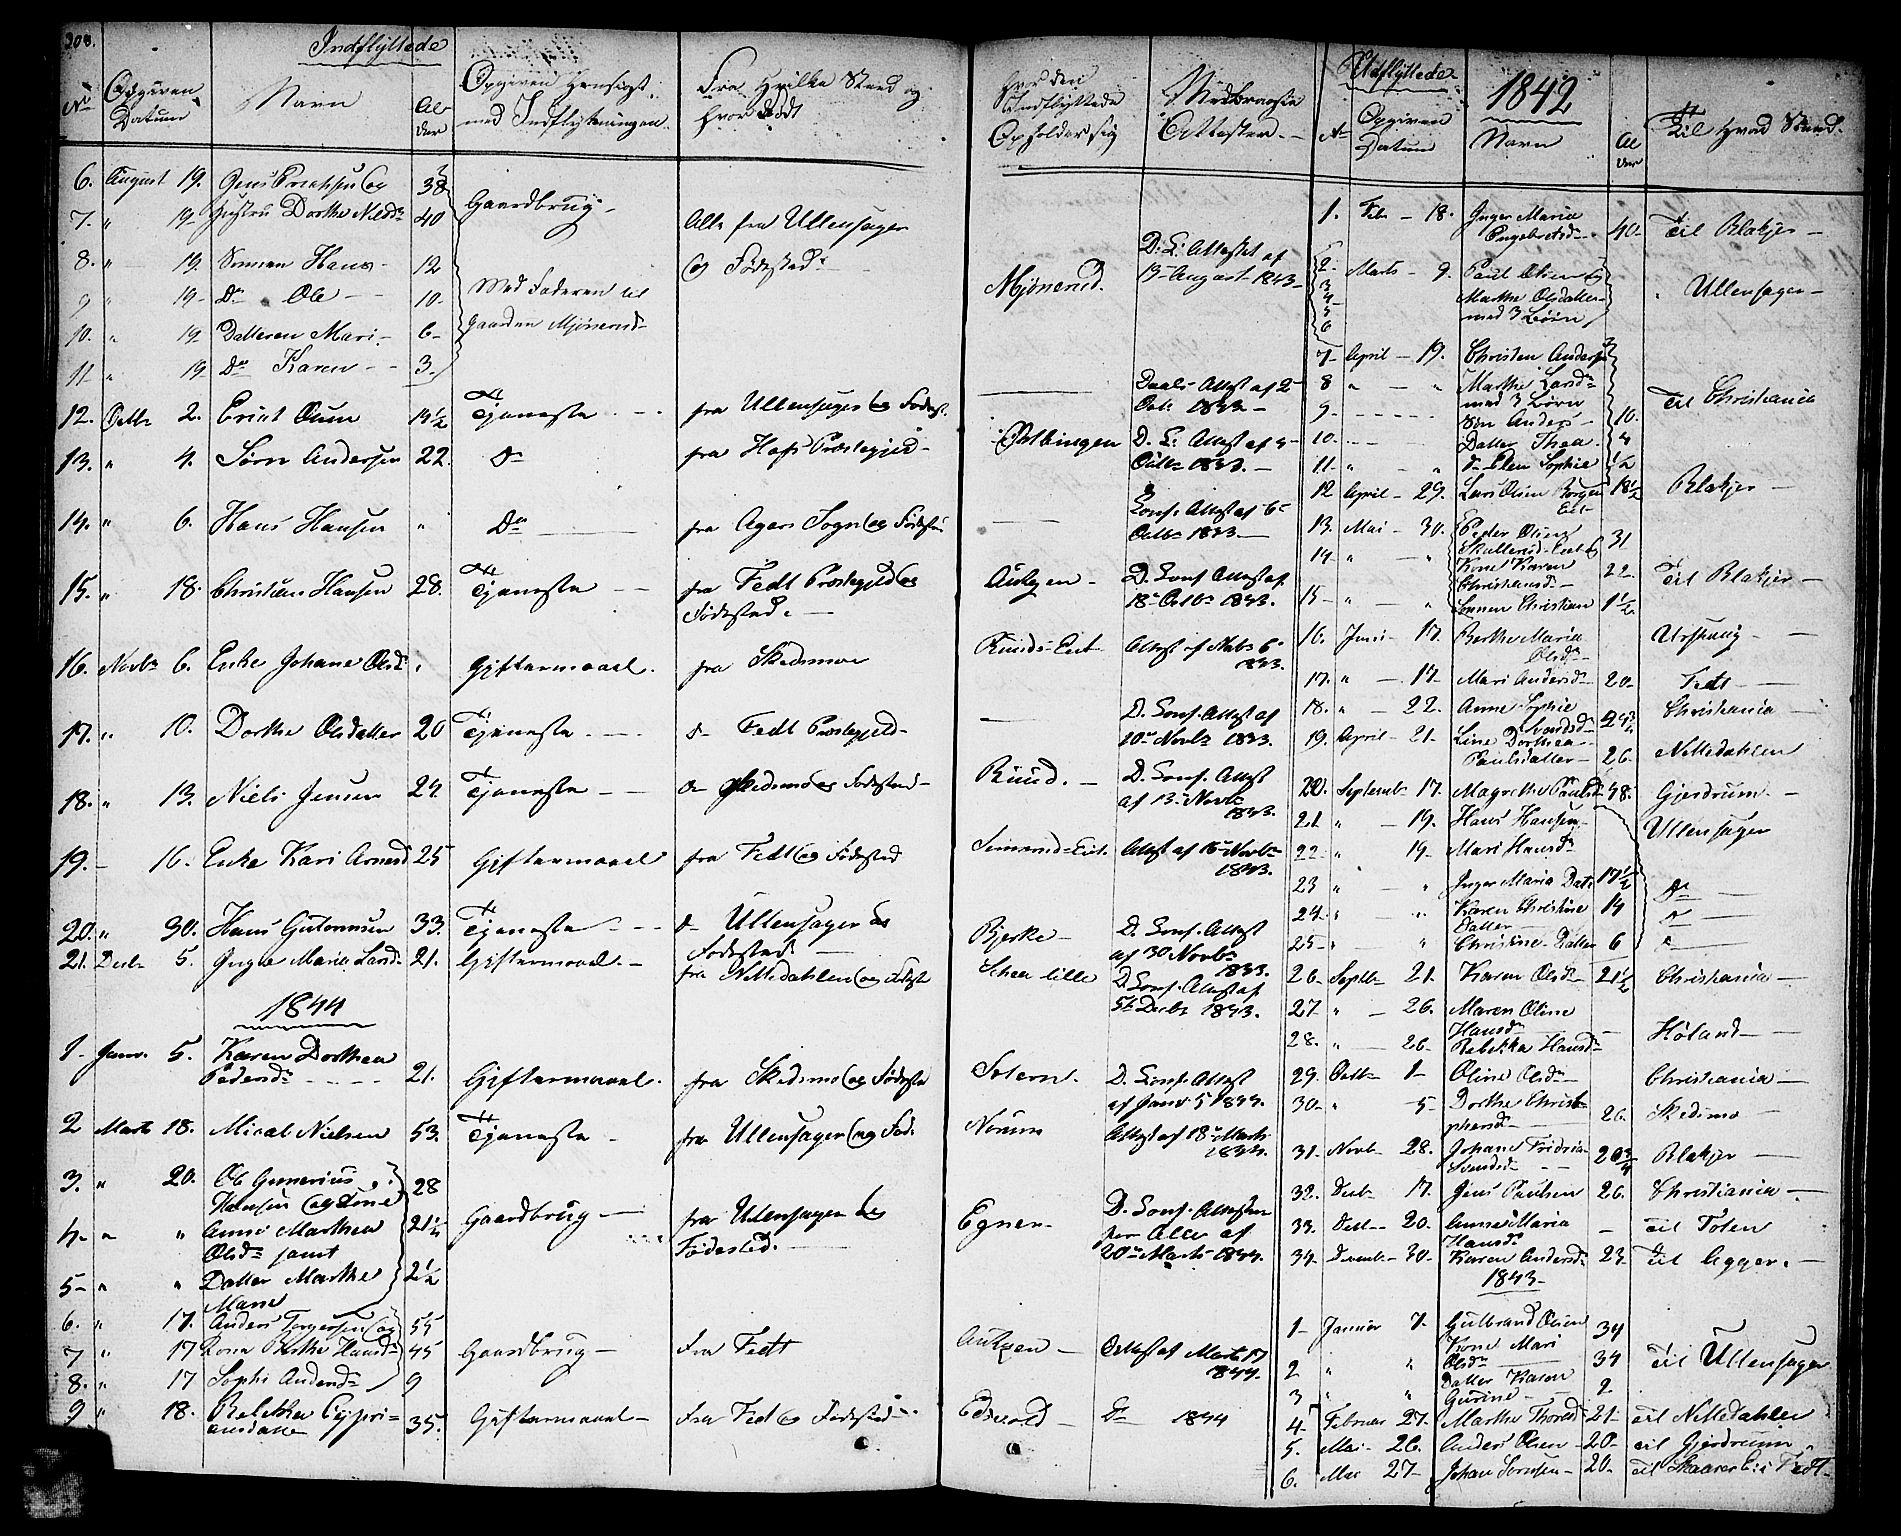 208.
Indflyttede
No
Opgiven Datum
Navn
Alder
Opgiven Hensigt med Indflytningen
Fra Hvilke Sted og hvor Født
hvor den Indflyttede Opholder sig
Medbragte Attester
6. August 19. Jens 38 Gaardbrug
7. " 19 Dorthe Nilsd. 40 Alle fra Ullensager
8. " 19. Sønnen Hans 12 og Fødested Mjønerud D. S. Attestet af 13 August 1843
9 " 19 Do Ole 10. Med Faderen til
10. " 19 Datteren Mari 6 Gaarden Mjønerud
11 " 19 Do Karen 3.
12. Octbr 2. Erich Olsen 19½ Tjeneste fra Ullensager og Fødest. Attest af 2 Octb 1843
13. " 4. Søren Andersen 22. Do fra Hofs Præstegjeld D. S. Attest af 4 Octbr 1843.
14. " 6. Hans Hansen " Do fra Agers Sogn og Fødested Conf. Attest af 6 Octbr 1843
15. " 18. Christian Hansen 28. Tjeneste fra Fedt Præstegjeld og Fødested. Aulgen D. Conf. Attest af 18 Octbr 1843.
16. Novbr 6. Enke Johane Olsd. " Giftermaal. fra Skedsmoe Ruuds-Eiet Attest af Novbr 6 1843.
17. " 10. Dorthe Olsdatter 20 Tjeneste Do Fedt Præstegjeld D. Conf. Attest af 10 Novbr 1843.
18. " 13. Niels Jensen 24. Tjeneste Do Skedsmo og Fødested Ruud. D. Conf. Attest af 13 Novbr 1843.
19. 16. Enke Kari Arnesd 25 Giftermaal fra Fedt og Fødested Attest af 16 Novbr 1843.
20. " 30. Hans Guttormsen 33. Tjeneste Do Ullensager og Fødested Bjerke D. Conf. Attest af 30 Novbr 1843.
21. Decb 5. Inger Maria Larsd. 21. Giftermaal. fra Nittedahlen og Fødest Schea lille D. Conf. Attest af 5te Decbr 1843.
1844
1 Janv. 5. Karen Dorthea Pedersd. 21. Giftermaal. fra Skedsmo og Fødested D. Conf. Attest af Janv 5 1844.
2 Marts 18. Micael Nielsen 53. Tjeneste fra Ullensager og Fød. Norum Attest af 18 Marts 1844.
3. " 20. Ole Gunerius Hansen og Kone 28 Gaardbrug fra Ullensager og Fødested. Egner D. Conf. Attester for Alle af 20 Marts 1844.
4 " " Anne Marthea Olsd. samt 21½
5 " " Datter Marthe Marie 2½
6. " 17. Anders Torgersen og 55
7 " 17 Kone Berthe Hansd. 45 Gaardbrug fra Fedt Aulgen Attest af Marts 17 1844.
8. " 17 Sophi Andersd. 9
9 " 18. Rebekka Cyprianusdatter 35. Giftermaal fra Fedt og Fødested Do 1844
Udflyttede
1842
No
Opgiven Datum
Navn
Alder
Til Hvad Sted.
1. Febr 18. Inger Maria Engebretsd. 40 Til Blakjer
2 Marts 9. Paul Olsen og
3
4 Marthe Olsdatter Ullensager
5 med 3 Børn
6
7 April 19. Christen Andersen
8 " " Marthe Larsd. med 3 Børn Til Christiania
9 Søn Anders 10.
10. Datter Thea 4
11 " " Do Elen Sophie ½
12 April 29. Lars Olsen Borgen Eiet 18½ Blakjer
13. Mai 30. Peder Olsen Skullerud-Eiet og 31
14 " " Kone Karen Christensd. 22 Til Blakjer
15 " " Sønnen Christian 1½
16. Juni 17. Berthe Maria Olsd. Urskoug
17. " 17 Mari Andersd. 20 Fedt
18. " 22. Anne Sophie Svendsd. Christiania
19. April 21 Line Dorthea Paulsdatter 26. Nittedahlen
20. Septembr 17. Magrethe Paulsd. 48. Gjerdrum
21 " 19. Hans Hansen Ullensager
22 " 19 Mari Hansd.
23 " " Inger Maria Dat. 17½ Do
24 " " Karen Christine Datter 14 Do
25 " " Christine Datter 6
26 Septbr 21. Karen Olsd. 21½ Christiania
27 " 26. Maren Oline Hansd.
28. " 26 Rebekka Hansd. Høland
29. Octbr 1 Oline Olsd. Christiania
30 " 5 Dorthe Christophersd. 26. Skedsmo
31 Novbr 28. Johane Fridrica Svendsd. 20¾ Blakjer
32. Decb 17. Jens Paulsen 26. Christiania
33. Decb 20. Anne Maria Hansd. Til Toten
34 Decemb 30. Karen Andersd. 23 Til Agger.
1843
1 Januar 7. Gulbrand Olsen 34
2 " " Kone Mari Olsd. 34 Til Ullensager
3 " " Datter Karen Gurine 2
4 Februar 27. Marthe Thoresd. 21 Til Nittedahlen
5. Mai 26. Anders Olsen 20 Til Gjerdrum
6. Mai 27 Johan Sørensen 20 Til Skaarer Eie i Fedt